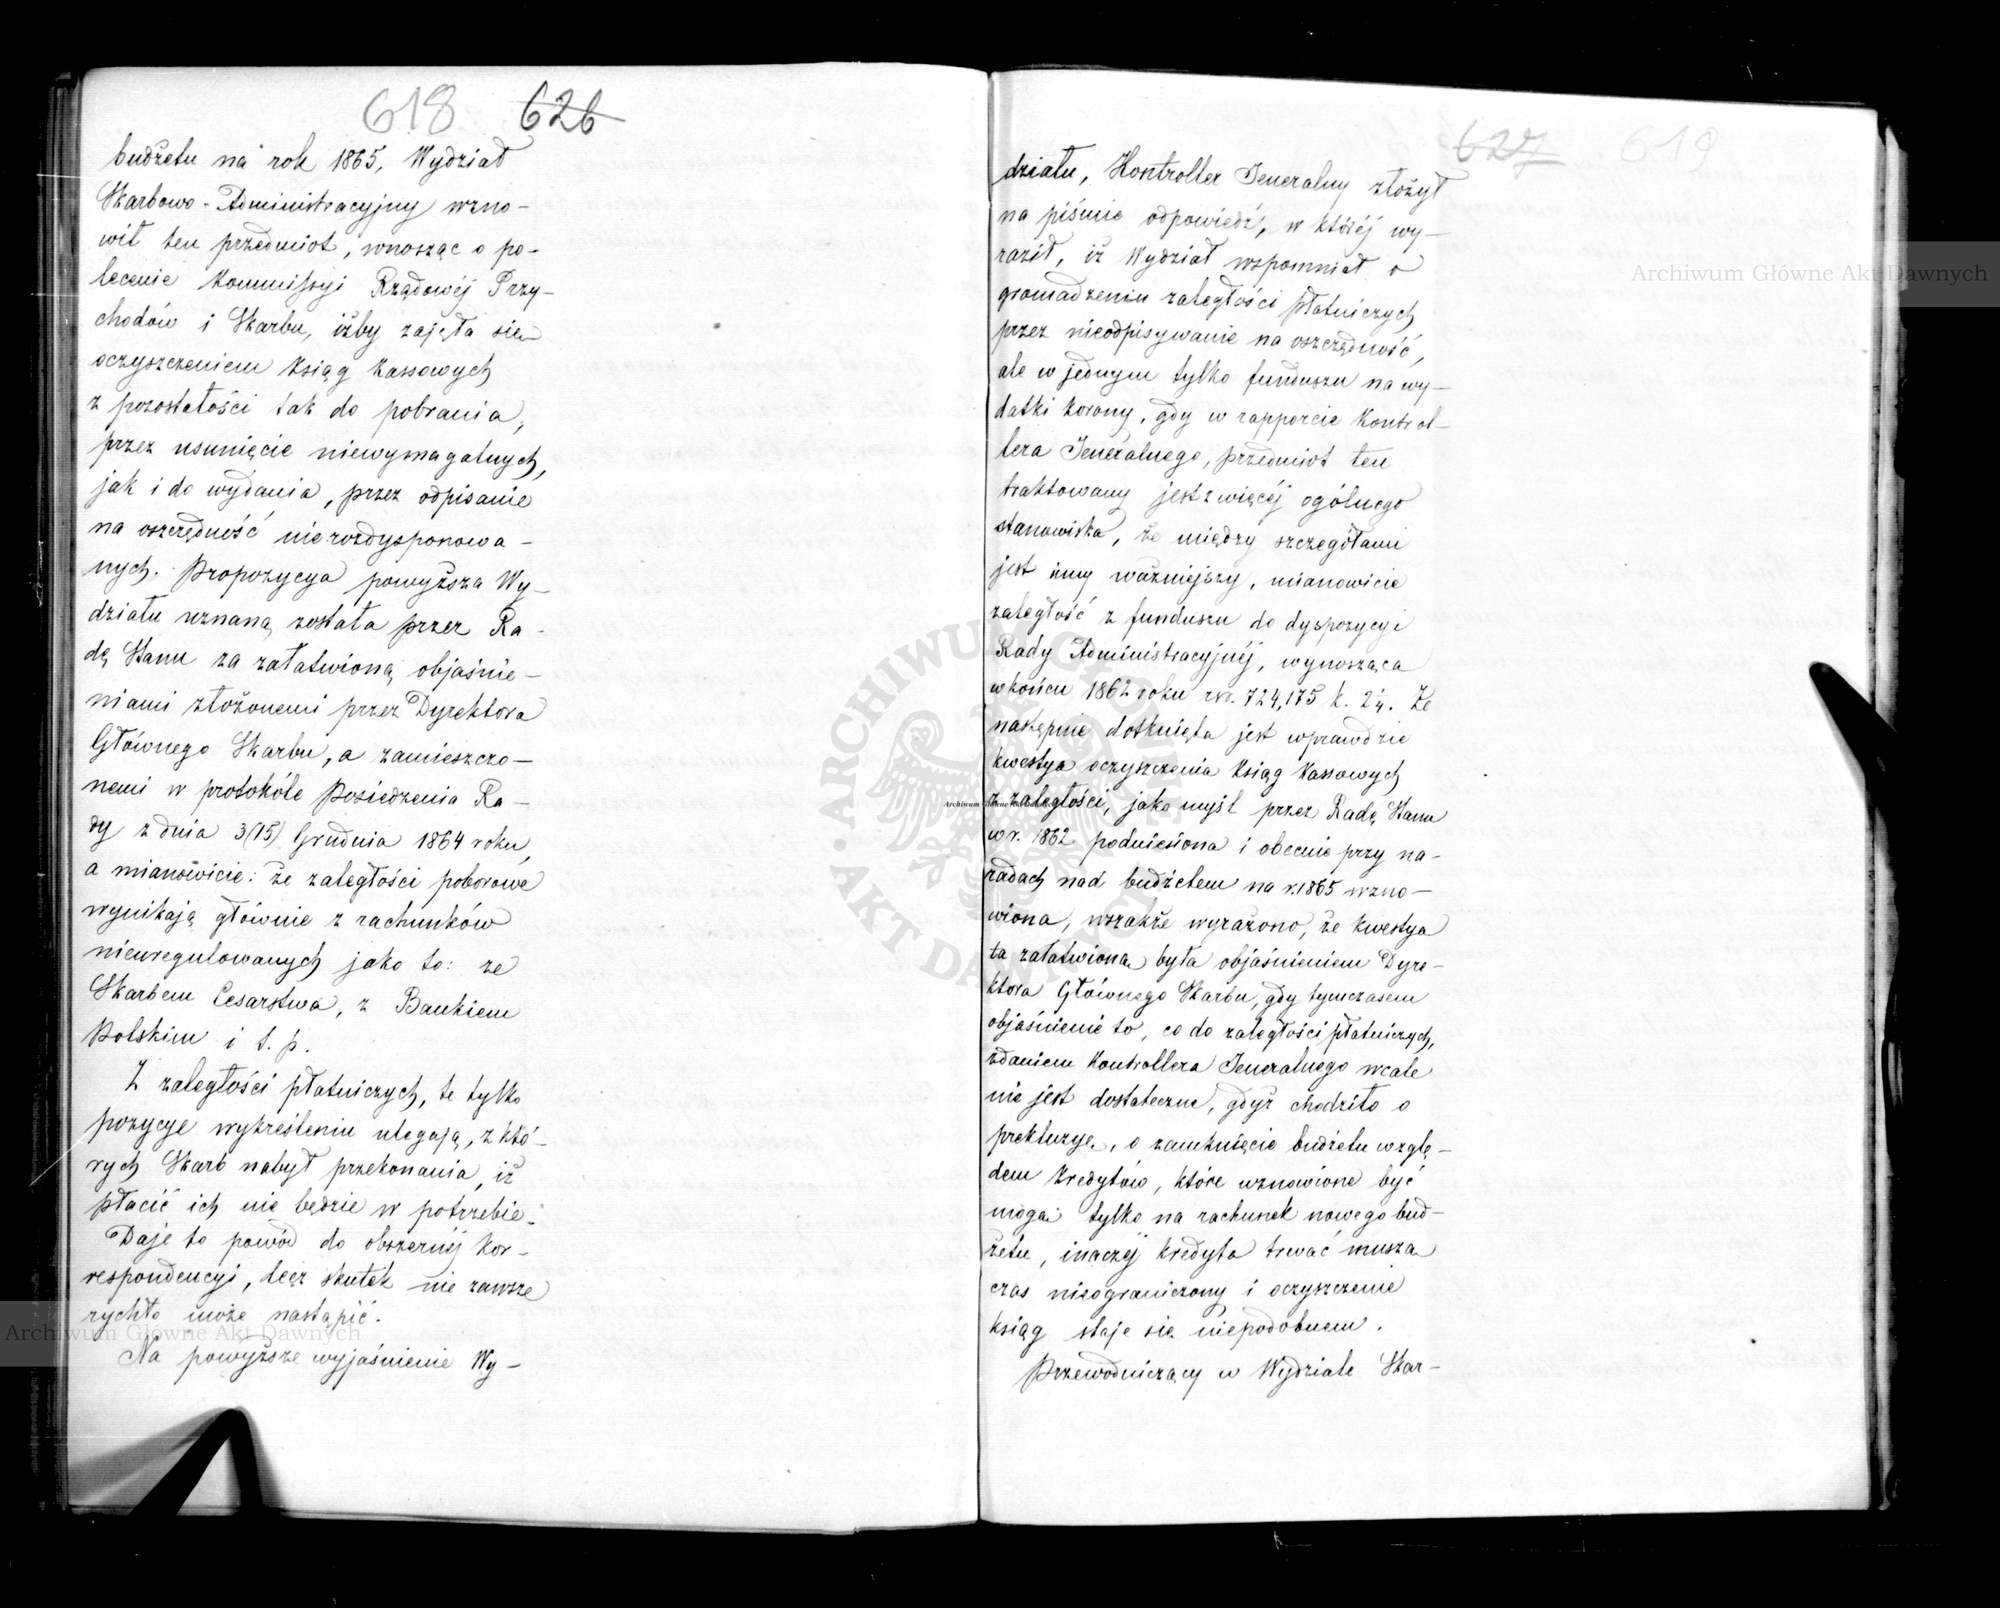 618 626
budżetu na rok 1865, Wydział
Skarbowo-Administracyjny wzno-
wił ten przedmiot, wnosząc o po-
lecenie Kommissyi Rządowéj Przy-
chodów i Skarbu, iżby zajęła się
oczyszczeniem Ksiąg Kassowych
z pozostałości tak do pobrania,
przez usunięcie niewymagalnych,
jak i do wydania, przez odpisanie
na oszczędność nierozdysponowa-
nych. Propozycya powyższa Wy-
działu uznaną została przez Ra-
dę Stanu za załatwioną objaśnie-
niami złożonemi przez Dyrektora
Głównego Skarbu, a zamieszczo-
nemi w protokóle Posiedzenia Ra-
dy z dnia 3(15) Grudnia 1864 roku,
a mianowicie: że zaległości poborowe
wynikają głównie z rachunków
nieuregulowanych jako to: ze
Skarbem Cesarstwa, z Bankiem
Polskim i t. p.
Z zaległości płatniczych, te tylko
pozycye wykreśleniu ulegają, z któ-
rych Skarb nabył przekonania, iż
płacić ich nie będzie w potrzebie.
Daje to powód do obszernéj kor-
respondencyi, lecz skutek nie zawsze
rychło może nastąpić.
Na powyższe wyjaśnienie Wy-
627 619
działu, Kontroller Jeneralny złożył
na piśmie odpowiedź, w któréj wy-
raził, iż Wydział wspomniał o
gromadzeniu zaległości płatniczych
przez nieodpisywanie na oszczędność,
ale w jednym tylko funduszu na wy-
datki Korony, gdy w rapporcie Kontrol-
lera Jeneralnego, przedmiot ten
traktowany jest z więcéj ogólnego
stanowiska, że między szczegółami
jest inny ważniejszy, mianowicie
zaległość z funduszu do dyspozycyi
Rady Administracyjnéj, wynosząca
w końcu 1862 roku rsr. 724,175 k. 2 1/4. Że
następnie dotknięta jest wprawdzie
kwestya oczyszczenia Ksiąg Kassowych
z zaległości, jako myśl przez Radę Stanu
w r. 1862 podniesiona i obecnie przy na-
radach nad budżetem na r. 1865 wzno-
wiona, wszakże wyrażono, że kwestya
ta załatwioną była objaśnieniem Dyre-
ktora Głównego Skarbu, gdy tymczasem
objaśnienie to, co do zaległości płatniczych,
zdaniem Kontrollera Jeneralnego wcale
nie jest dostateczne, gdyż chodziło o
prekluzyę, o zamknięcie budżetu wzglę-
dem kredytów, które wznowione być
mogą tylko na rachunek nowego bud-
żetu, inaczéj kredyta trwać muszą
czas nieograniczony i oczyszczenie
ksiąg staje się niepodobnem.
Przewodniczący w Wydziale Skar-
Archiwum Główne Akt Dawnych
Archiwum Główne Akt Dawnych
ARCHIWUM GŁÓWNE
AKT DAWNYCH